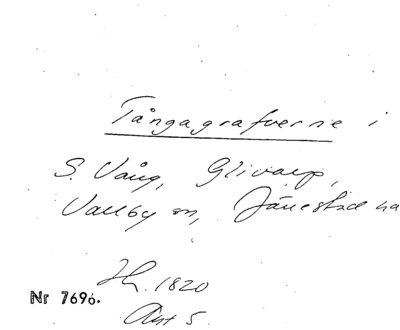 Tångagrafverne i
S. Vång, Glivarp,
Vallby m, Jänestad ha
H. 1820
Nr 7696.
Akt 5.